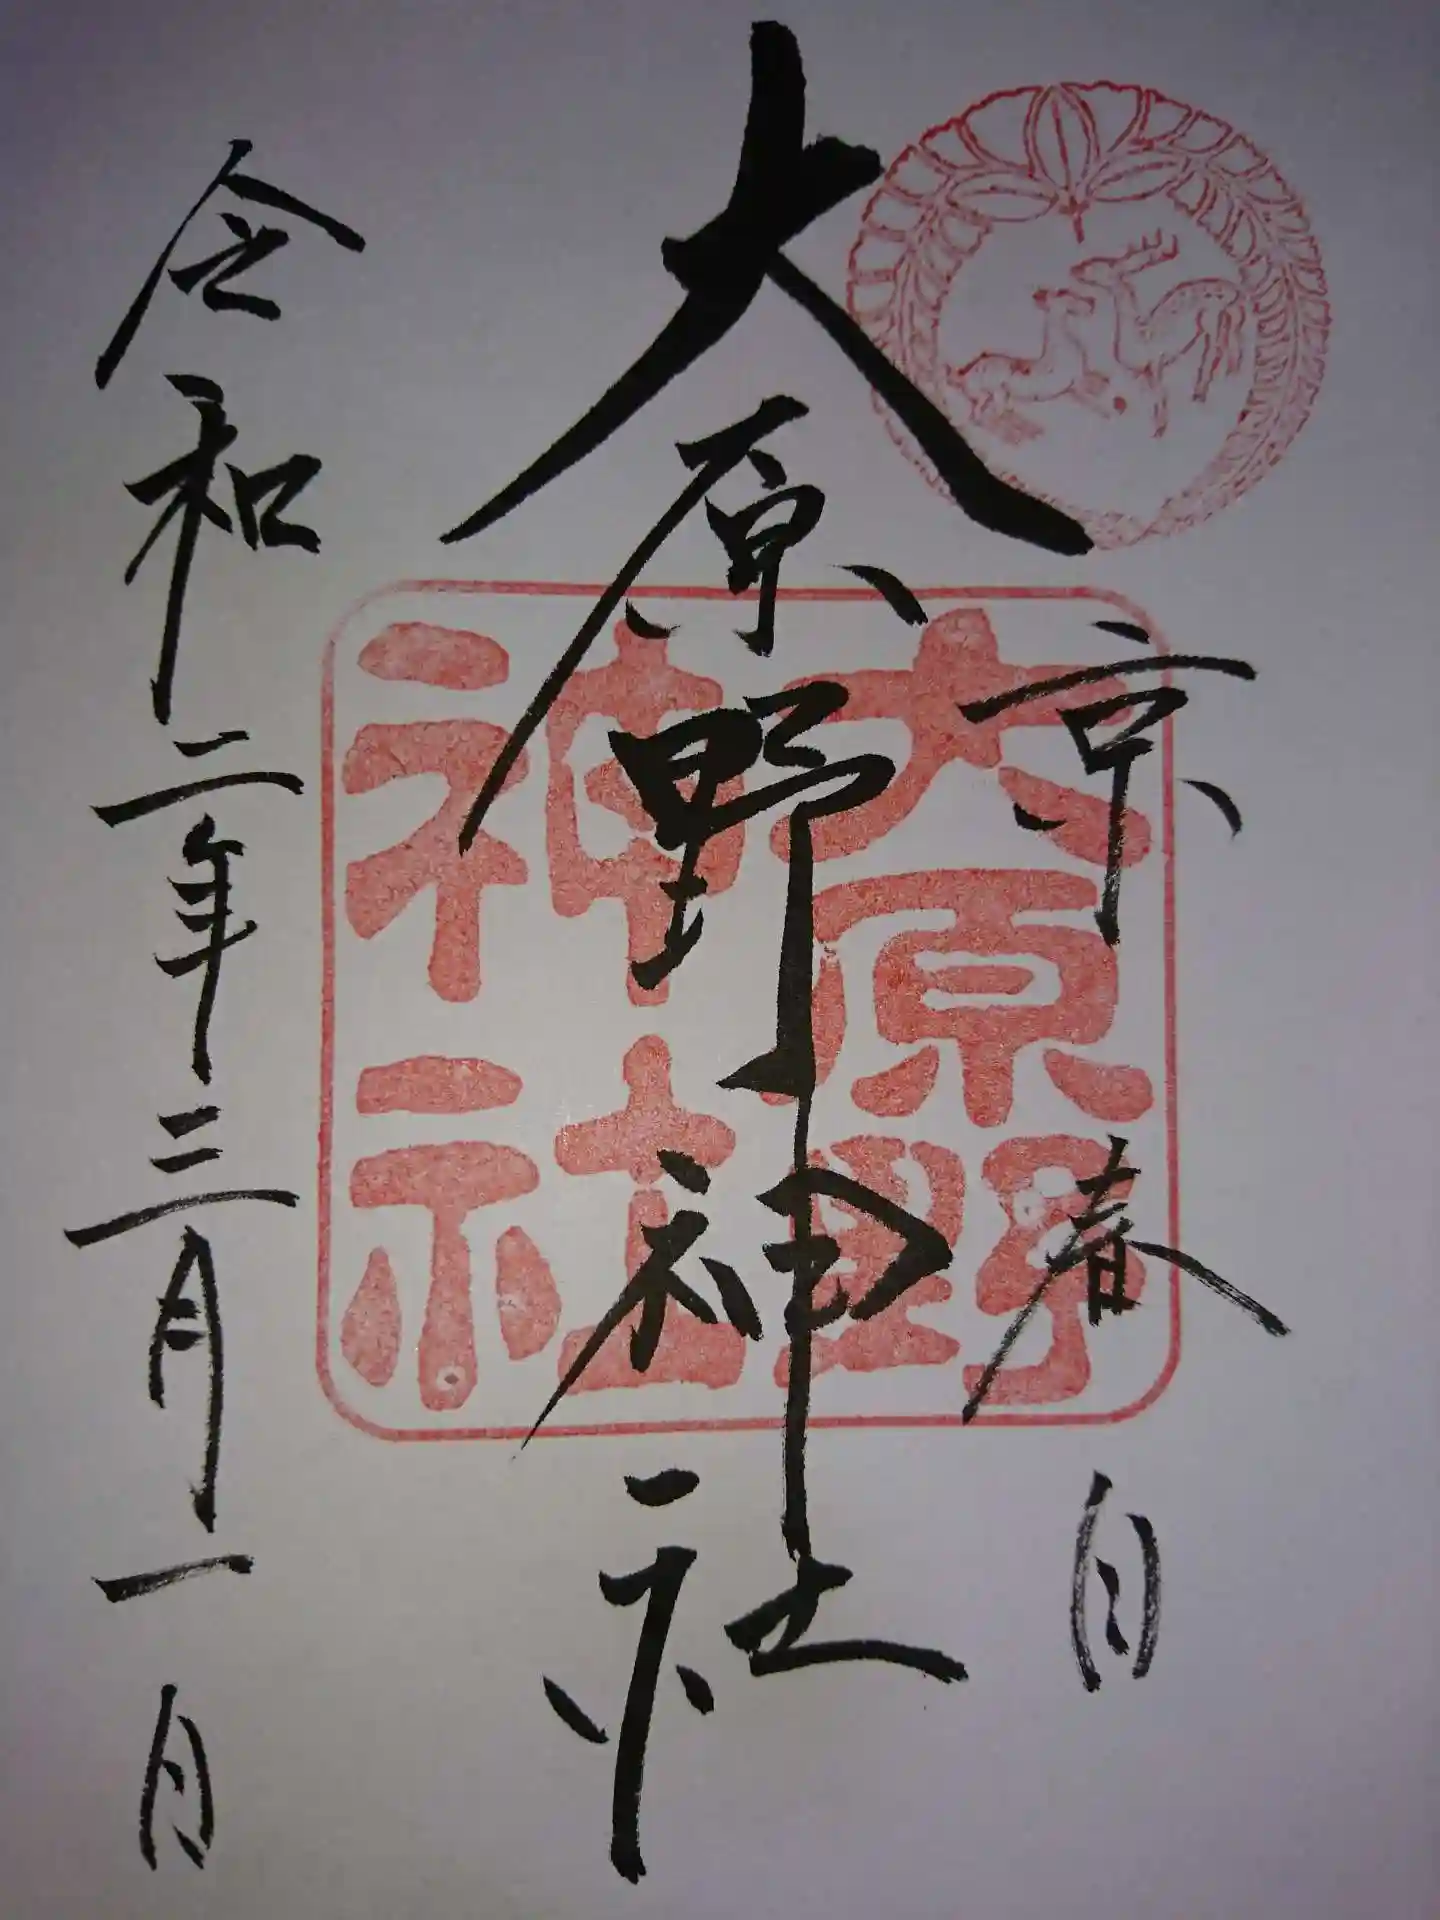 京春日
大原野神社
大原野
神社
令和二年三月一日